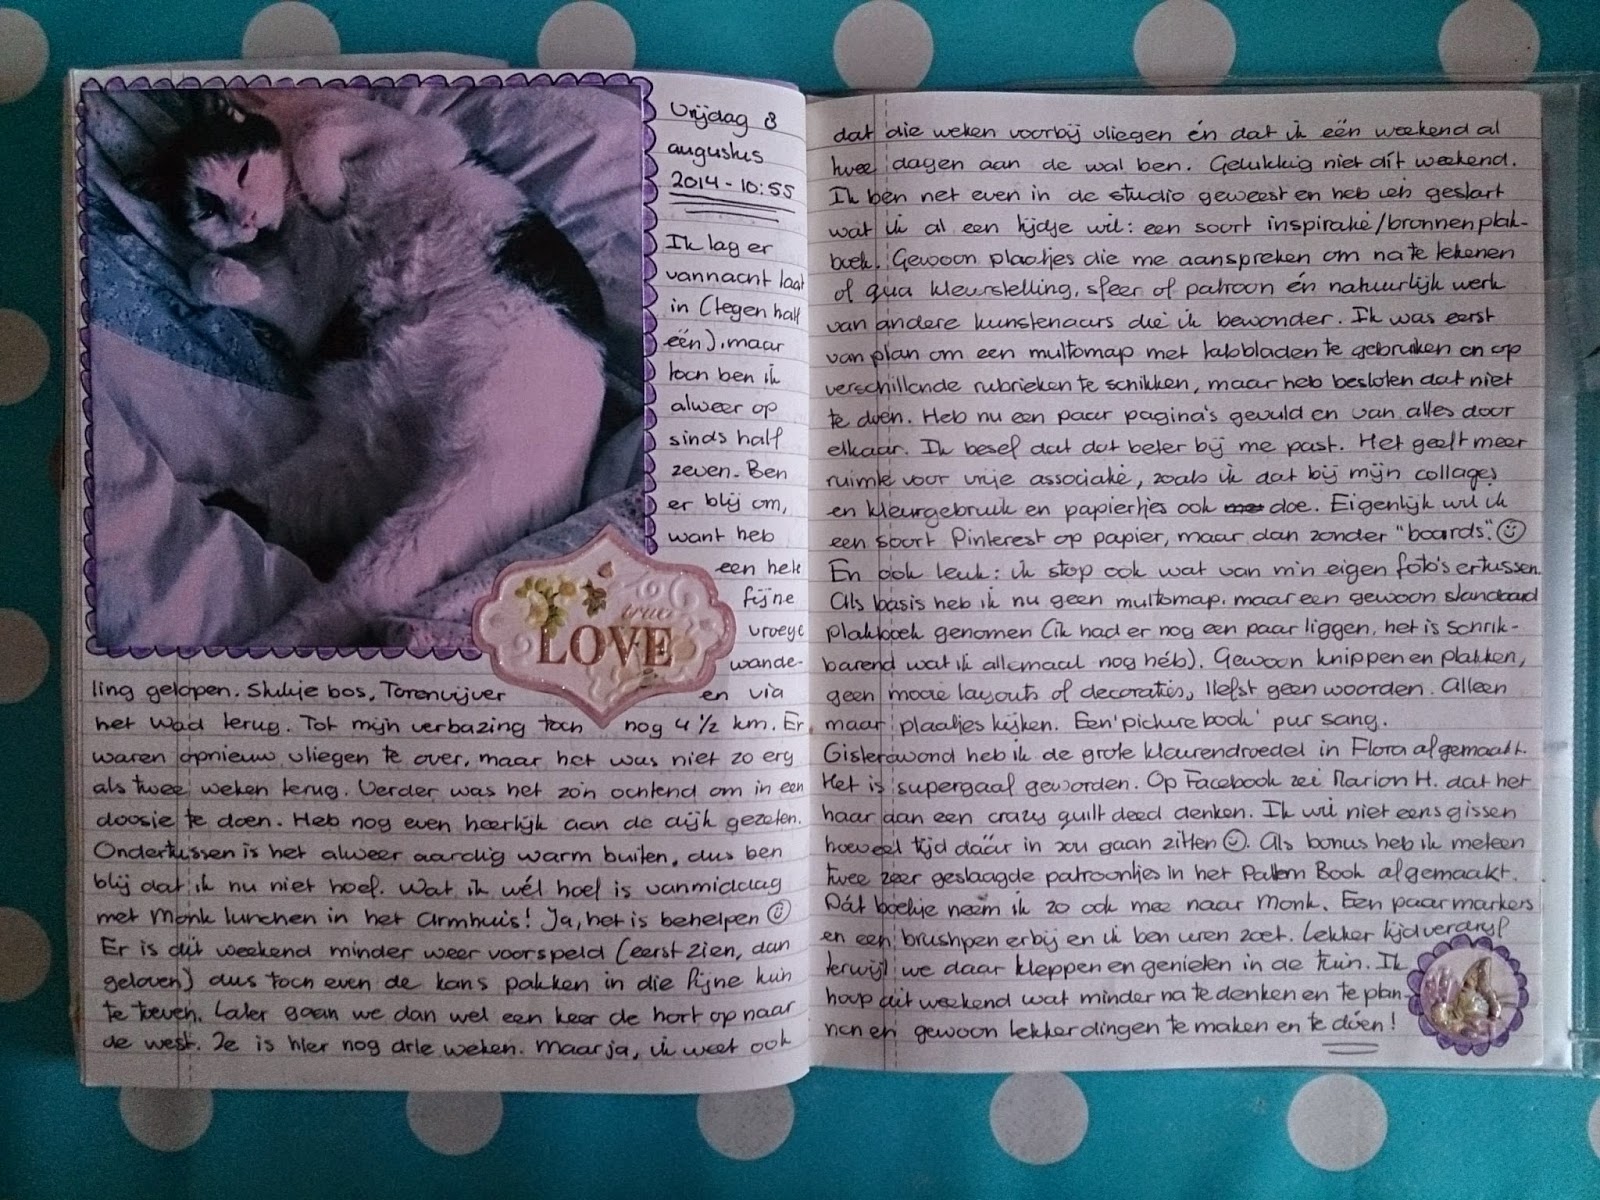 Vrijdag 8
augustus
2014 - 10:55
Ik lag er
vannacht laat
in (tegen half
één), maar
toch ben ik
alweer op
sinds half
zeven. Ben
er blij om,
want heb
een hele
fijne
vroege
wande-
ling gelopen. Stukje bos, Torenvijver en via
het Wad terug. Toch mijn verbazing toch nog 4 1/2 km. Er
waren opnieuw vliegen te over, maar het was niet zo erg
als twee weken terug. Verder was het zo'n ochtend om in een
doosje te doen. Heb nog even heerlijk aan de dijk gezeten.
Ondertussen is het alweer aardig warm buiten, dus ben
blij dat ik nu niet hoef. Wat ik wél hoef is vanmiddag
met Monk lunchen in het Armhuis! Ja, het is behelpen ☺
Er is dit weekend minder weer voorspeld (eerst zien, dan
geloven) dus toch even de kans pakken in die fijne tuin
te toeven. Later gaan we dan wel een keer de hort op naar
de west. Ze is hier nog drie weken. Maar ja, ik weet ook
dat die weken voorbij vliegen én dat ik één weekend al
twee dagen aan de wal ben. Gelukkig niet dít weekend.
Ik ben net even in de studio geweest en heb iets gestart
wat ik al een tijdje wil: een soort inspiratie/bronnenplak-
boek. Gewoon plaatjes die me aanspreken om na te tekenen
of qua kleurstelling, sfeer of patroon én natuurlijk werk
van andere kunstenaars die ik bewonder. Ik was eerst
van plan om een multomap met tabbladen te gebruiken en op
verschillende rubrieken te schikken, maar heb besloten dat niet
te doen. Heb nu een paar pagina's gevuld en van alles door
elkaar. Ik besef dat dat beter bij me past. Het geeft meer
ruimte voor vrije associatie, zoals ik dat bij mijn collages
en kleurgebruik en papiertjes ook doe. Eigenlijk wil ik
een soort Pinterest op papier, maar dan zonder "boards". ☺
En ook leuk: ik stop ook wat van m'n eigen foto's ertussen.
Als basis heb ik nu geen multomap, maar een gewoon standaard
plakboek genomen (ik had er nog een paar liggen, het is schrik-
barend wat ik allemaal nog héb). Gewoon knippen en plakken,
geen mooie layouts of decoraties, liefst geen woorden. Alleen
maar plaatjes kijken. Een 'picture book' pur sang.
Gisteravond heb ik de grote kleurendroedel in Flora afgemaakt.
Het is supergaaf geworden. Op Facebook zei Marion H. dat het
haar dan een crazy quilt deed denken. Ik wil niet eens gissen
hoeveel tijd dáár in zou gaan zitten ☺. Als bonus heb ik meteen
twee zeer geslaagde patroontjes in het Pattern Book afgemaakt.
Dát boekje neem ik zo ook mee naar Monk. Een paar markers
en een brushpen erbij en ik ben uren zoet. Lekker tijdverdrijf
terwijl we daar kleppen en genieten in de tuin. Ik
hoop dit weekend wat minder na te denken en te plan-
nen en gewoon lekker dingen te maken en te dóen!
true
LOVE